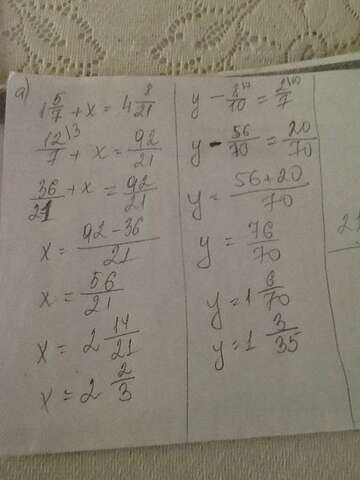 а)
1 5/7 + x = 4 8/21
12/7 \3 + x = 92/21
36/21 + x = 92/21
x = 92-36/21
x = 56/21
x = 2 14/21
x = 2 2/3
y - 8/10 \7 = 2/7 \10
y - 56/70 = 20/70
y = 56+20/70
y = 76/70
y = 1 6/70
y = 1 3/35